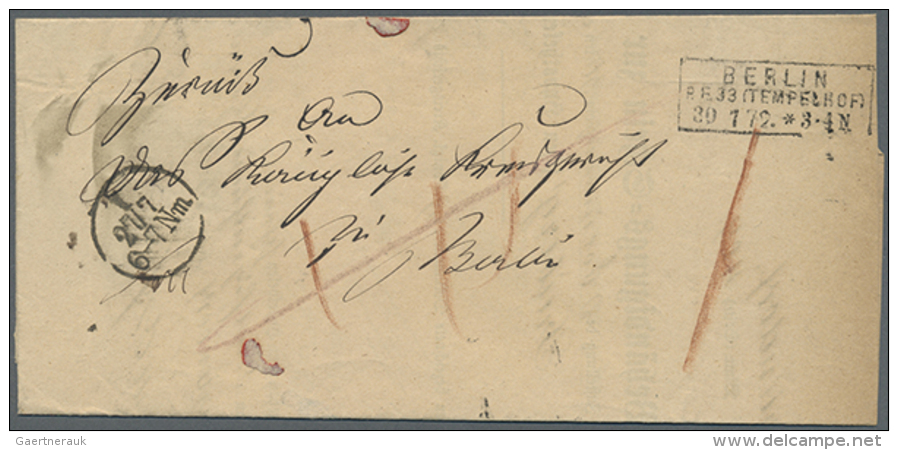 Zurück
An
BERLIN
P.E.33 (TEMPELHOF)
30 7 72. * 3-4 N
das Königliche Kreisgericht
zu
Berlin
27/7
6-7 Nm.
Gaertnerauk
www.delcampe.net